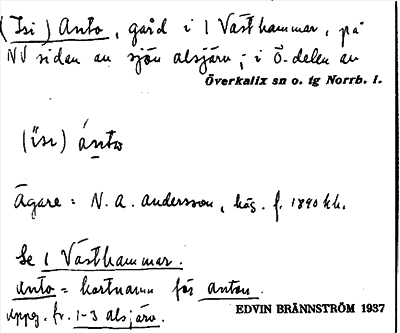 (Isi) Anto, gård i 1 Västhammar, på
NV sidan av sjön alsjärv; i Ö. delen av
Överkalix sn o. tg Norrb. l.
(ïsı) ánto
Ägare: N. A. Andersson, häg. f. 1890 kh.
Se 1 Västhammar.
Anto = kortnamn för anton.
uppg. fr. 1-3 alsjärv.
EDVIN BRÄNNSTRÖM 1937